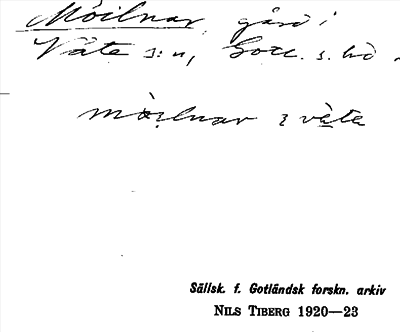 Möilnar, gård i
Väte s:n, Gotl. s. hd.
mòilnar i vä̀ta
Sällsk. f. Gotländsk forskn. arkiv
NILS TIBERG 1920—23